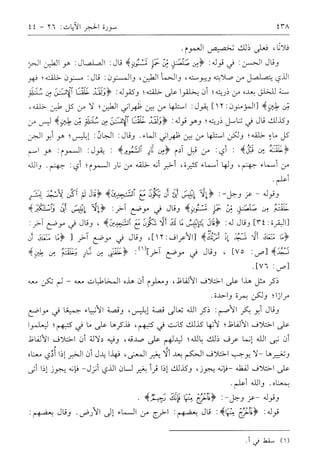 ٤٣٨ سورة الحجر الآيات: ٢٦ - ٤٤
فلانًا، فعلى ذلك تخصيص العموم.
وقال الحسن: في قوله: ﴿مِن صَلْصَالٍ مِّنْ حَمَإٍ مَّسْنُونٍ﴾ قال: الصلصال: هو الطين الحرّ
الذي يتصلصل من صلابته ويبوسته، والحمأ الطين، والمسنون: قال: مسنون خلقته؛ فهو
سنة للخلق بعده من ذريته؛ أن يخلقوا على خلقته؛ وكقوله: ﴿وَلَقَدْ خَلَقْنَا الْإِنسَانَ مِن سُلَالَةٍ
مِّن طِينٍ﴾ [المؤمنون: ١٢] يقول: استلها من بين ظهراني الطين؛ لا من كل طين خلقه،
وكذلك قال في تناسل ذريته؛ وهو قوله: ﴿وَلَقَدْ خَلَقْنَا الْإِنسَانَ مِن سُلَالَةٍ مِّن طِينٍ﴾ ليس من
كل ماءٍ خلقه؛ ولكن استلها من بين ظهراني الماء. وقال: الجانّ: إبليس؛ وهو أبو الجن
﴿خَلَقْنَاهُ مِن قَبْلُ﴾ : أي: من قبل آدم ﴿مِن نَّارِ السَّمُومِ﴾ : يقول: السموم: هو اسم
من أسماء جهنم، ولها أسماء كثيرة، أخبر أنه خلقه من نار السموم؛ أي: جهنم. والله
أعلم.
وقوله - عز وجل-: ﴿إِلَّا إِبْلِيسَ أَبَى أَن يَكُونَ مَعَ السَّاجِدِينَ﴾ ﴿قَالَ لَمْ أَكُن لِّأَسْجُدَ لِبَشَرٍ
خَلَقْتَهُ مِن صَلْصَالٍ مِّنْ حَمَإٍ مَّسْنُونٍ﴾ وقال في موضع آخر: ﴿إِلَّا إِبْلِيسَ أَبَى وَاسْتَكْبَرَ﴾
[البقرة: ٣٤] وقال له: ﴿قَالَ يَا إِبْلِيسُ مَا لَكَ أَلَّا تَكُونَ مَعَ السَّاجِدِينَ﴾، وقال في موضع آخر:
﴿مَا مَنَعَكَ أَلَّا تَسْجُدَ إِذْ أَمَرْتُكَ﴾ [الأعراف: ١٢]، وقال في موضع آخر [﴿مَا مَنَعَكَ أَن
تَسْجُدَ﴾ [ص: ٧٥] ، وقال في موضع آخر](١): ﴿خَلَقْتَنِي مِن نَّارٍ وَخَلَقْتَهُ مِن طِينٍ﴾
[ص: ٧٦].
ذكر مثل هذا على اختلاف الألفاظ، ومعلوم أن هذه المخاطبات معه - لم تكن معه
مرارًا؛ ولكن بمرة واحدة.
وقال أبو بكر الأصم: ذكر الله تعالى قصة إبليس، وقصة الأنبياء جميعًا في مواضع
على اختلاف الألفاظ؛ لأنها كذلك كانت في كتبهم، فذكرها على ما في كتبهم؛ ليعلموا
أن نبي الله إنما عرف ذلك بالله؛ ليدلهم على صدقه، وفيه دلالة أن اختلاف الألفاظ
وتغييرها - لا يوجب اختلاف الحكم بعد ألّا يغير المعنى، فهذا يدل أن الخبر إذا أُدِّي معناه
على اختلاف لفظه - فإنه يجوز، وكذلك إذا قرأ بغير لسان الذي أنزل - فإنه يجوز إذا أتى
بمعناه. والله أعلم.
وقوله - عز وجل-: ﴿فَاخْرُجْ مِنْهَا فَإِنَّكَ رَجِيمٌ﴾ .
قوله: ﴿فَاخْرُجْ مِنْهَا﴾ : قال بعضهم: اخرج من السماء إلى الأرض. وقال بعضهم:
(١) سقط في أ.